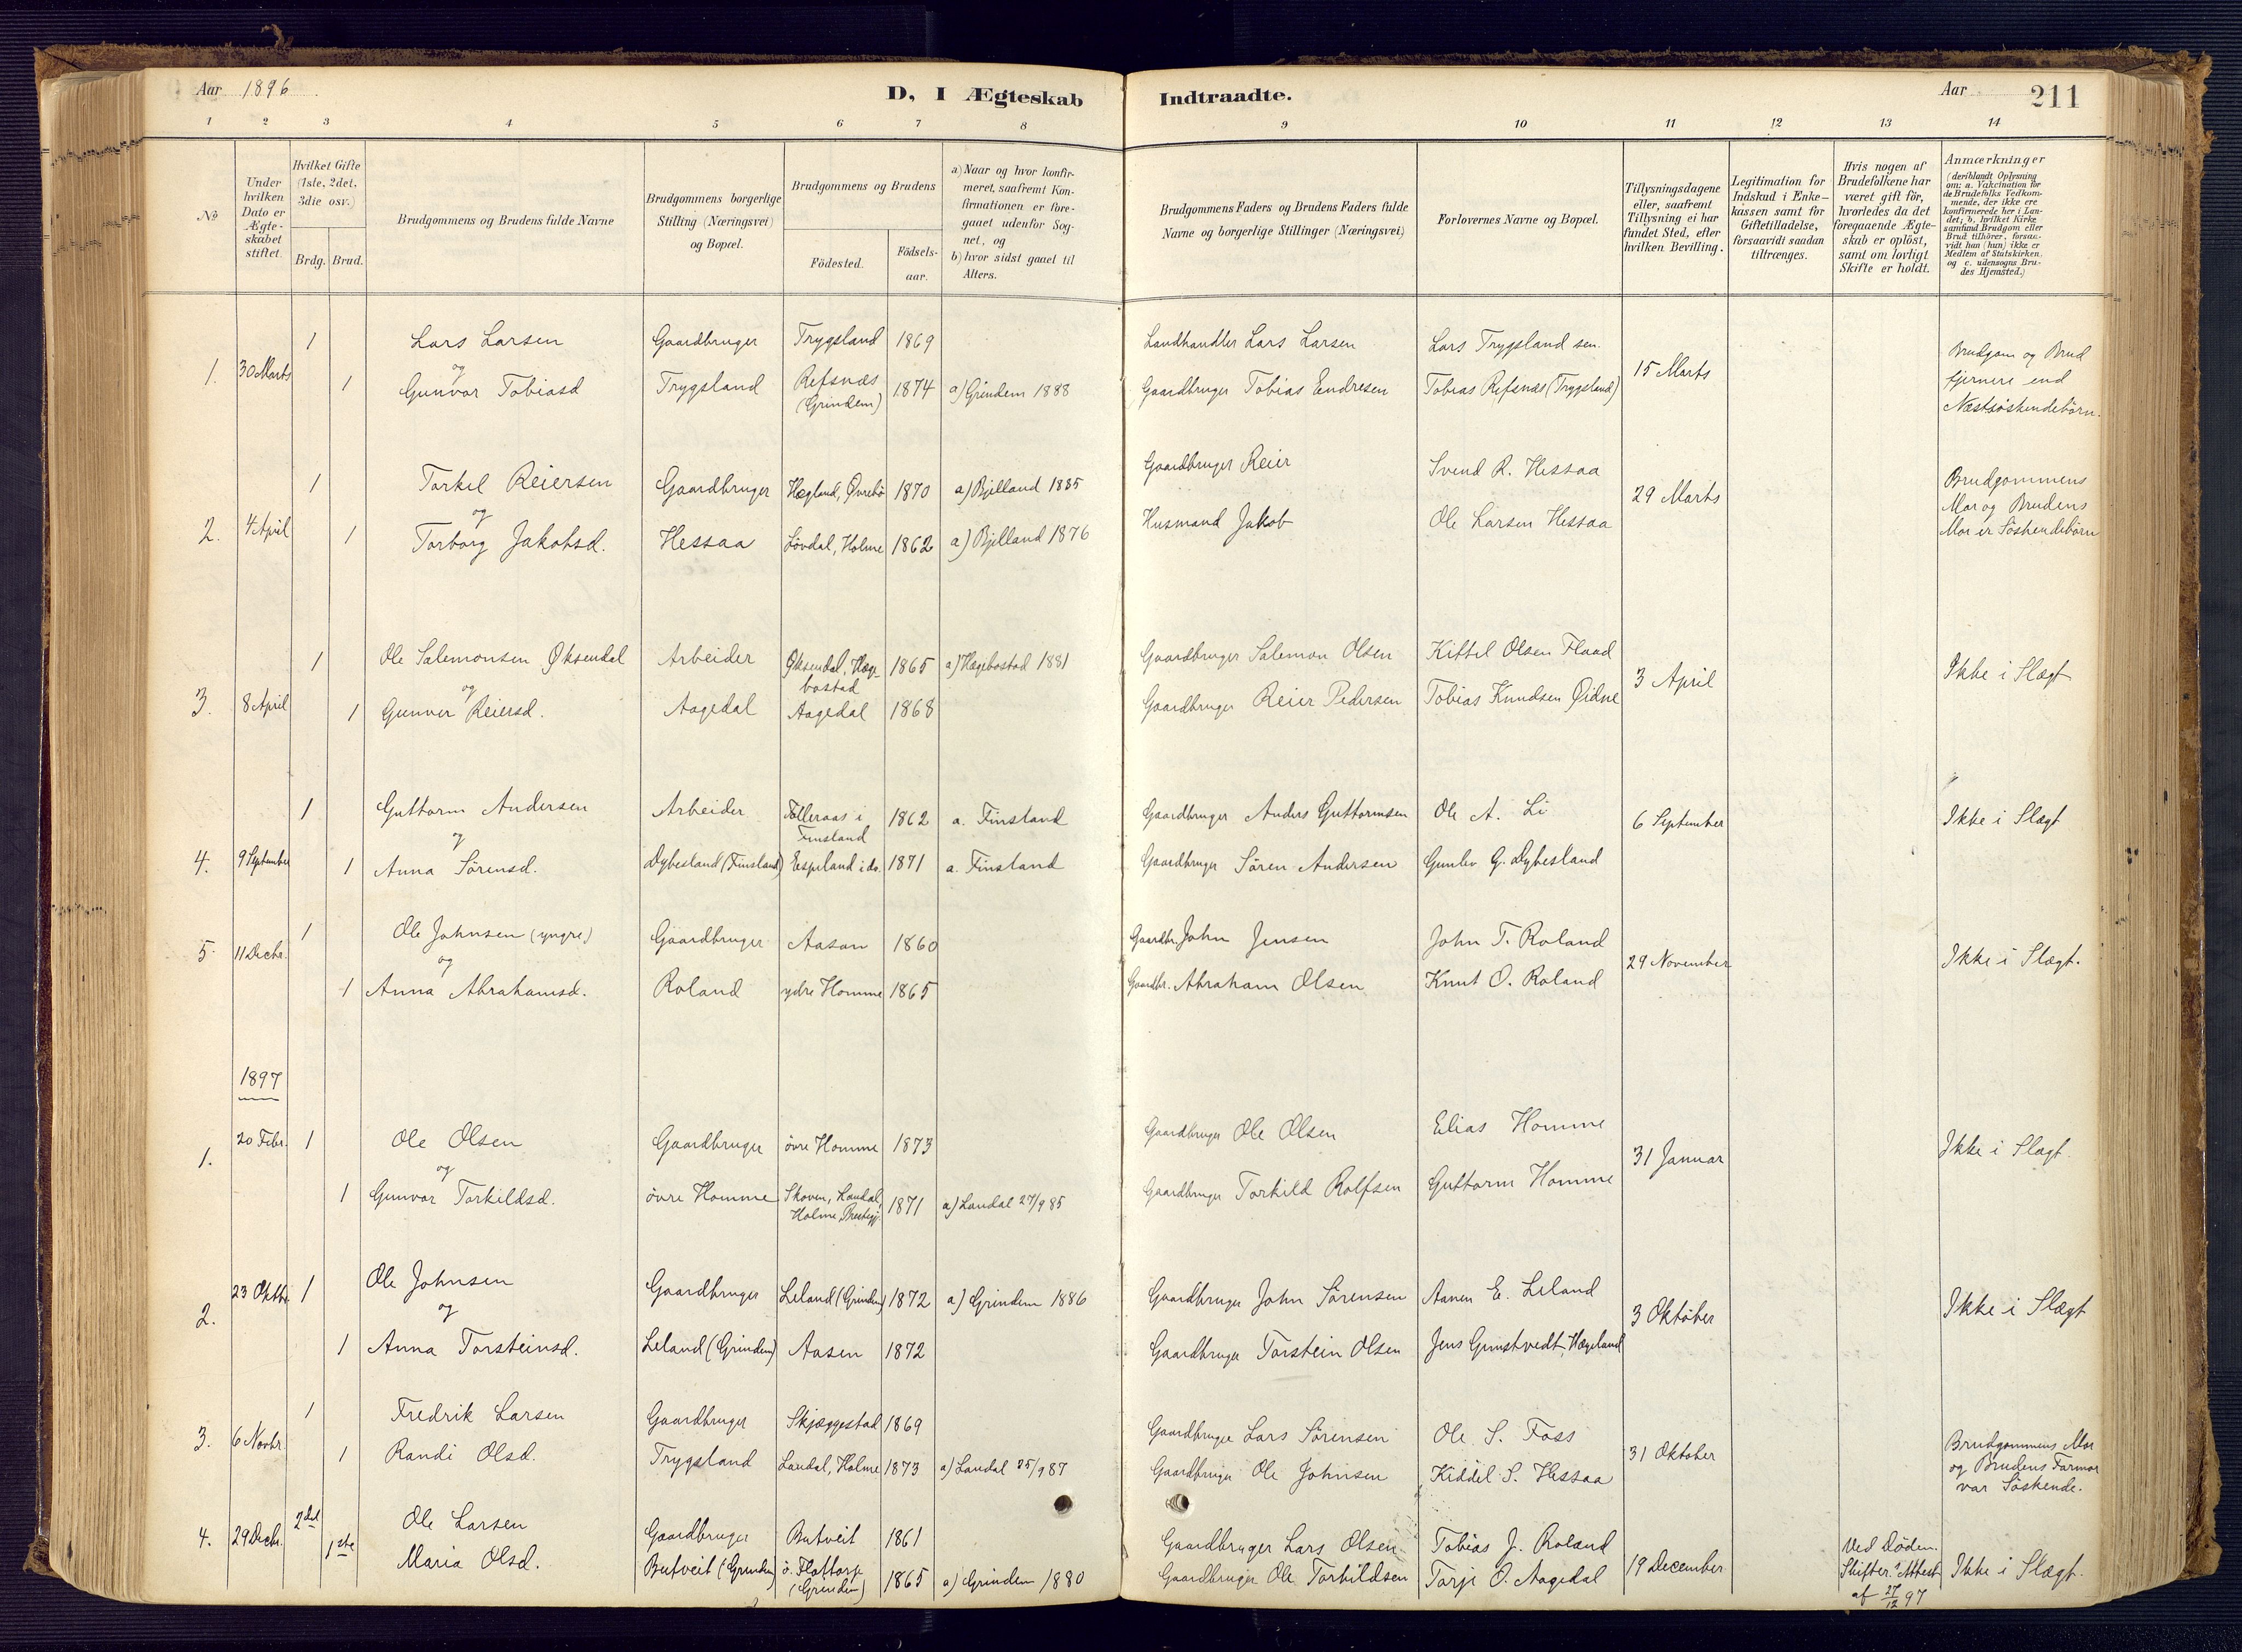 Aar 1896
D, I Ægteskab Indtraadte.
Aar
211
1 2 3 4 5 6 7 8 9 10 11 12 13 14
No
Under hvilken Dato er Ægteskabet stiftet.
Hvilket Gifte (1ste, 2det, 3die osv.)
Brdg. Brud.
Brudgommens og Brudens fulde Navne
Brudgommens borgerlige Stilling (Næringsvei) og Bopæl.
Brudgommens og Brudens
Födested.
Födsels-aar.
a) Naar og hvor konfir-
meret, saafremt Kon-
firmationen er fore-
gaaet udenfor Sog-
net, og
b) hvor sidst gaaet til
Alters.
Brudgommens Faders og Brudens Faders fulde
Navne og borgerlige Stillinger (Næringsvei)
Forlovernes Navne og Bopæl.
Tillysningsdagene
eller, saafremt
Tillysning ei har
fundet Sted, efter
hvilken Bevilling.
Legitimation for
Indskud i Enke-
kassen samt for
Giftetilladelse,
forsaavidt saadan
tiltrænges.
Hvis nogen af
Brudefolkene har
været gift för,
hvorledes da det
foregaaende Ægte-
skab er oplöst,
samt om lovligt
Skifte er holdt.
Anmærkninger
(deriblandt Oplysning
om: a. Vakcination for
de Brudefolks Vedkom-
mende, der ikke ere
konfirmerede her i Lan-
det; b. hvilket Kirke
samfund Brudgom eller
Brud tilhörer, forsaa-
vidt han (hun) ikke er
Medlem af Statskirken,
og c. udensogns Bru-
des Hjemsted.)
1. 30 Marts 1 Lars Larsen Gaardbruger Trygsland 1869 Landhandler Lars Larsen Lars Trygsland sen. 15 Marts Brudgom og Brud
og
1 Gunvor Tobiasd Trygsland Refsnæs (Grindem) 1874 a) Grindem 1888 Gaardbruger Tobias Endresen Tobias Refsnæs (Trygsland) fjernere end
Næstsöskendebörn.
2. 4 April 1 Torkel Reiersen Gaardbruger Hægland, Øvrebö 1870 a) Bjelland 1885 Gaardbruger Reier Svend R. Hessaa 29 Marts Brudgommens
og
1 Torborg Jakobsd. Hessaa Lövdal, Holme 1862 a) Bjelland 1876 Husmand Jakob Ole Larsen Hessaa Mor og Brudens
Mor er Söskendebörn
3. 8 April 1 Ole Salemonsen Øksendal Arbeider Øksendal, Hæg-
bostad 1865 a) Hægebostad 1881 Gaardbruger Salemon Olsen Kittel Olsen Flaad 3 April Ikke i Slægt
og
1 Gunver Reiersd. Aagedal Aagedal 1868 Gaardbruger Reier Pedersen Tobias Knudsen Øidne
4. 9 September 1 Guttorm Andersen Arbeider Folleraas i
Finsland 1862 a. Finsland Gaardbruger Anders Guttormsen Ole A. Li 6 September Ikke i Slægt
og
1 Anna Sörensd. Dybesland (Finsland) Espeland i do. 1871 a. Finsland Gaardbruger Sören Andersen Gunlev G. Dybesland
5. 11 Decbr. 1 Ole Johnsen (yngre) Gaardbruger Aasen 1860 Gaardbr. John Jensen John T. Roland 29 November Ikke i Slægt.
og
1 Anna Abrahamsd. Roland ydre Homme 1865 Gaardbr. Abraham Olsen Knut O. Roland
1897
1. 20 Febr. 1 Ole Olsen Gaardbruger övre Homme 1873 Gaardbruger Ole Olsen Elias Homme 31 Januar Ikke i Slægt.
og
1 Gunvor Torkildsd. övre Homme Skoven, Laudal,
Holme Prestegj. 1871 a) Laudal 27/9 85 Gaardbruger Torkild Rolfsen Guttorm Homme
2. 23 Oktbr. 1 Ole Johnsen Gaardbruger Leland (Grindem) 1872 a) Grindem 1886 Gaardbruger John Sörensen Aanen E. Leland 3 Oktober Ikke i Slægt
og
1 Anna Torsteinsd. Leland (Grindem) Aasen 1872 Gaardbruger Torstein Olsen Jens Grunstvedt, Hægeland
3. 6 Novbr. 1 Fredrik Larsen Gaardbruger Skjæggestad 1869 Gaardbruger Lars Sörensen Ole S. Foss 31 Oktober Brudgommens Mor
1 Randi Olsd. Trygsland Laudal, Holme 1873 a) Laudal 25/9 87 Gaardbruger Ole Johnsen Kiddel S. Hessaa og Brudens Farmor
var Söskende.
4. 29 Decbr. 2det Ole Larsen Gaardbruger Butveit 1861 Gaardbruger Lars Olsen Tobias J. Roland 19 December Ved Döden. Ikke i Slægt.
1ste Maria Olsd. Butveit (Grindem) ö. Flottorp
(Grindem) 1865 a) Grindem 1880 Gaardbruger Ole Torkildsen Torje O. Aagedal Skifter. Attest
af 27/12 97